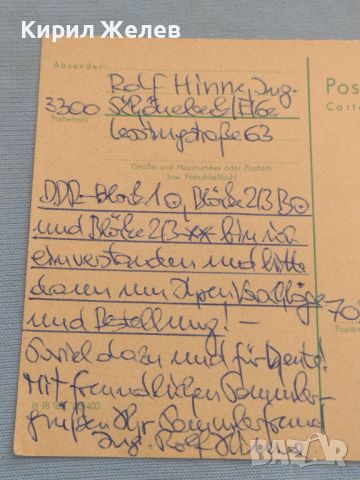 Кирил Желев
Absender:
Pos
Rolf Hinne, Ing.
Carte
3300 Schönebeck/Elbe
Postleitzahl
Lessingstraße 63
(Straße und Hausnummer oder Postfach
bzw. Postschließfach)
DDR-Block 10, Blöcke 2/3
und Blöcke 2/3 ** bin ich
einverstanden und bitte
dann um Ihren
70
und Bestellung! –
Soviel dazu und für heute!
Mit freundlichen Sammler-
grüßen Ihr Sammlerfreund
III 18 400
Ing. Rolf Hinne
BAZAR